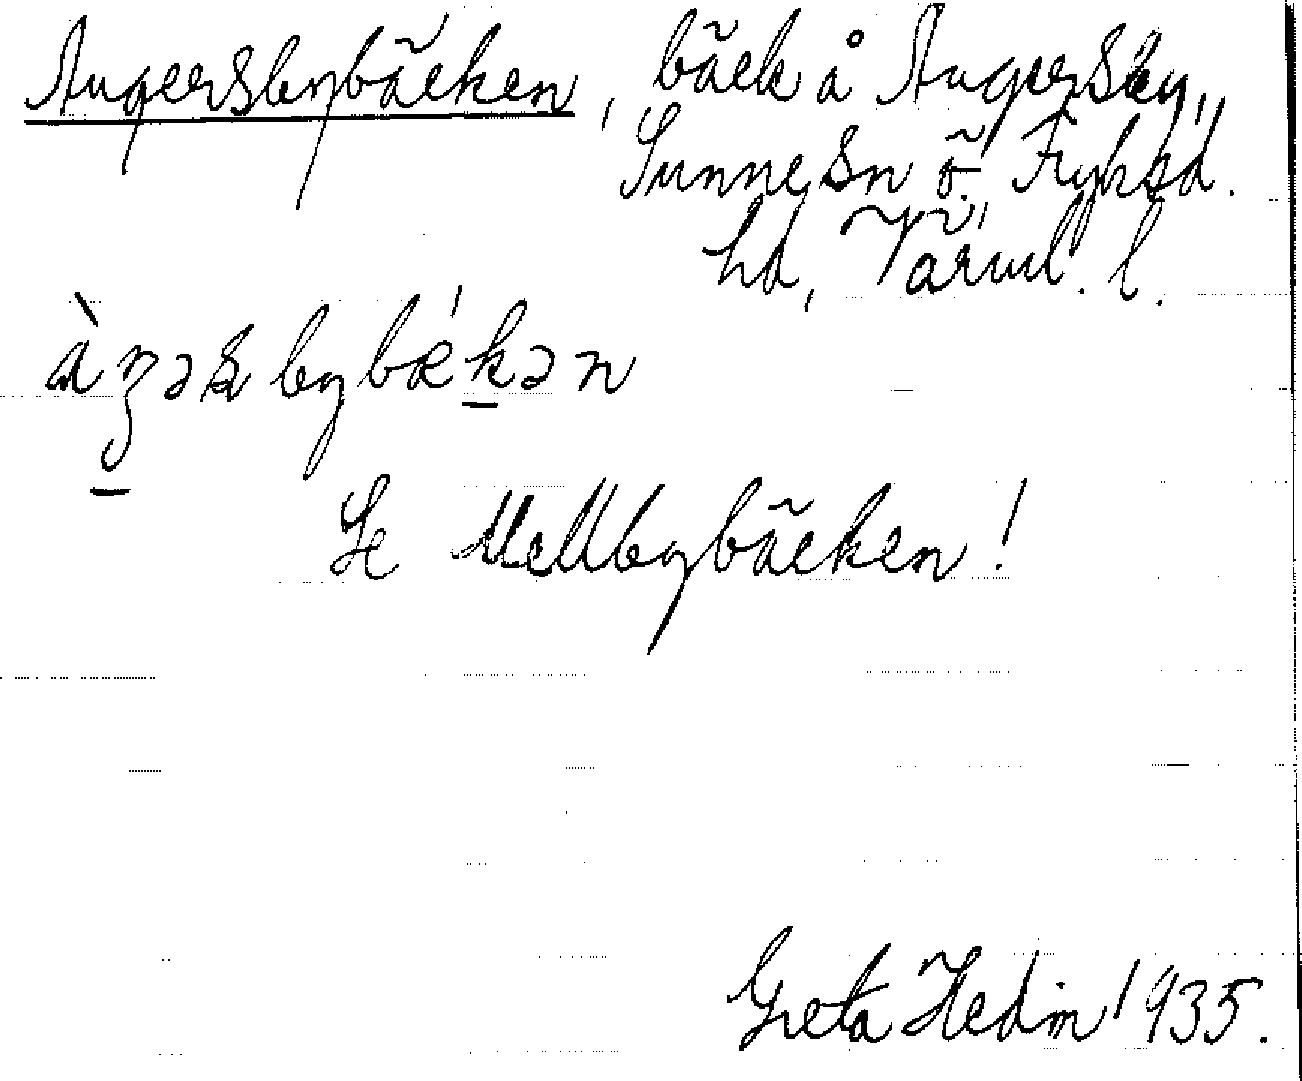 Angersbybäcken, bäck å Angersby,
Sunne sn ö. Fryksd.
hd, Värml. l.
àŋəsbybǽkən
Se Mellbybäcken!
Greta Hedin 1935.